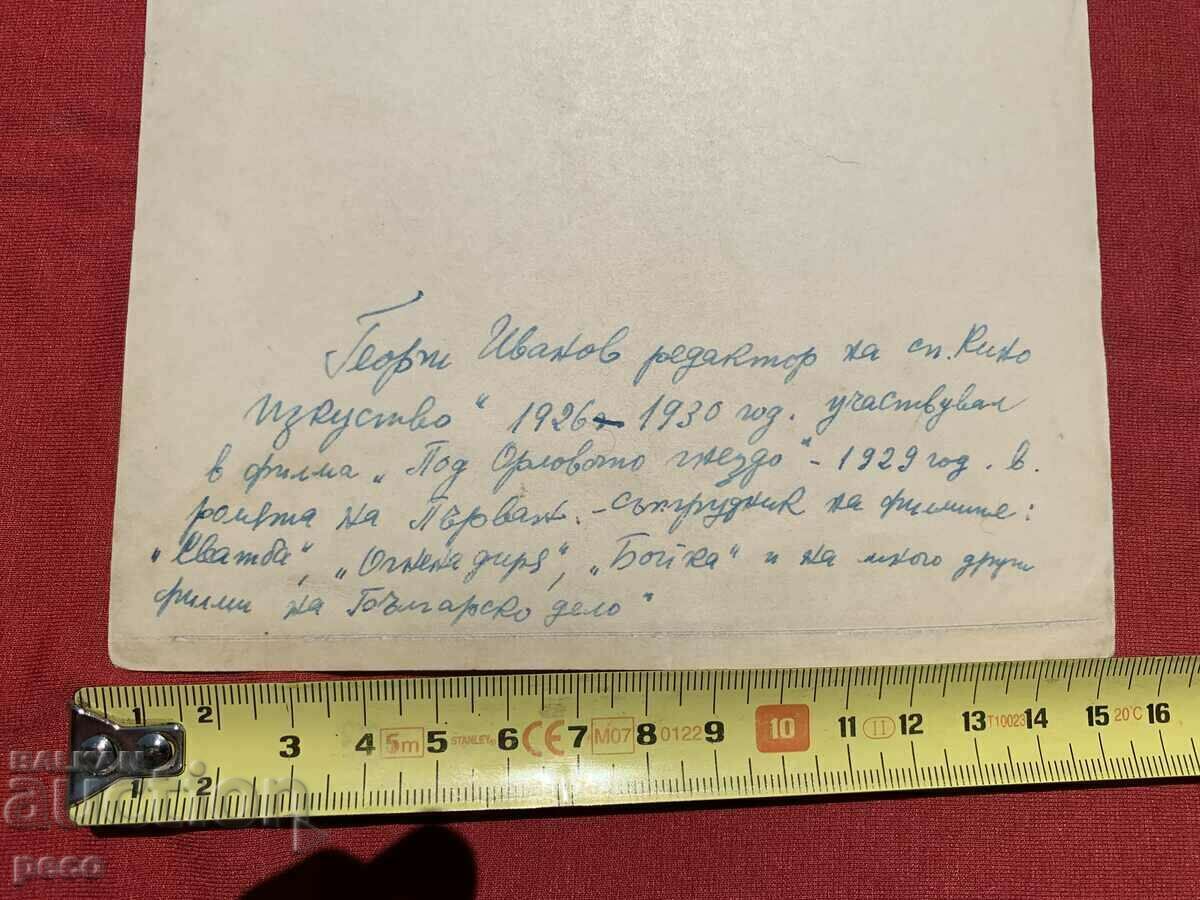 Георги Иванов редактор на сп. Кино
изкуство" 1926 - 1930 год. участвувал
в филма „Под Орловото гнездо" - 1929 год. в.
ролята на Първан. - сътрудник на филмите:
„Сватба", „Огнена диря", „Бойка" и на много други
филми на Българско дело"
1 2 3 4 5m 5 STANLEY 6 CE 7 M07 8 0122 9 10 11 II 12 13 T10023 14 15 20°C 16
1 2
BALKAN
auction
peco